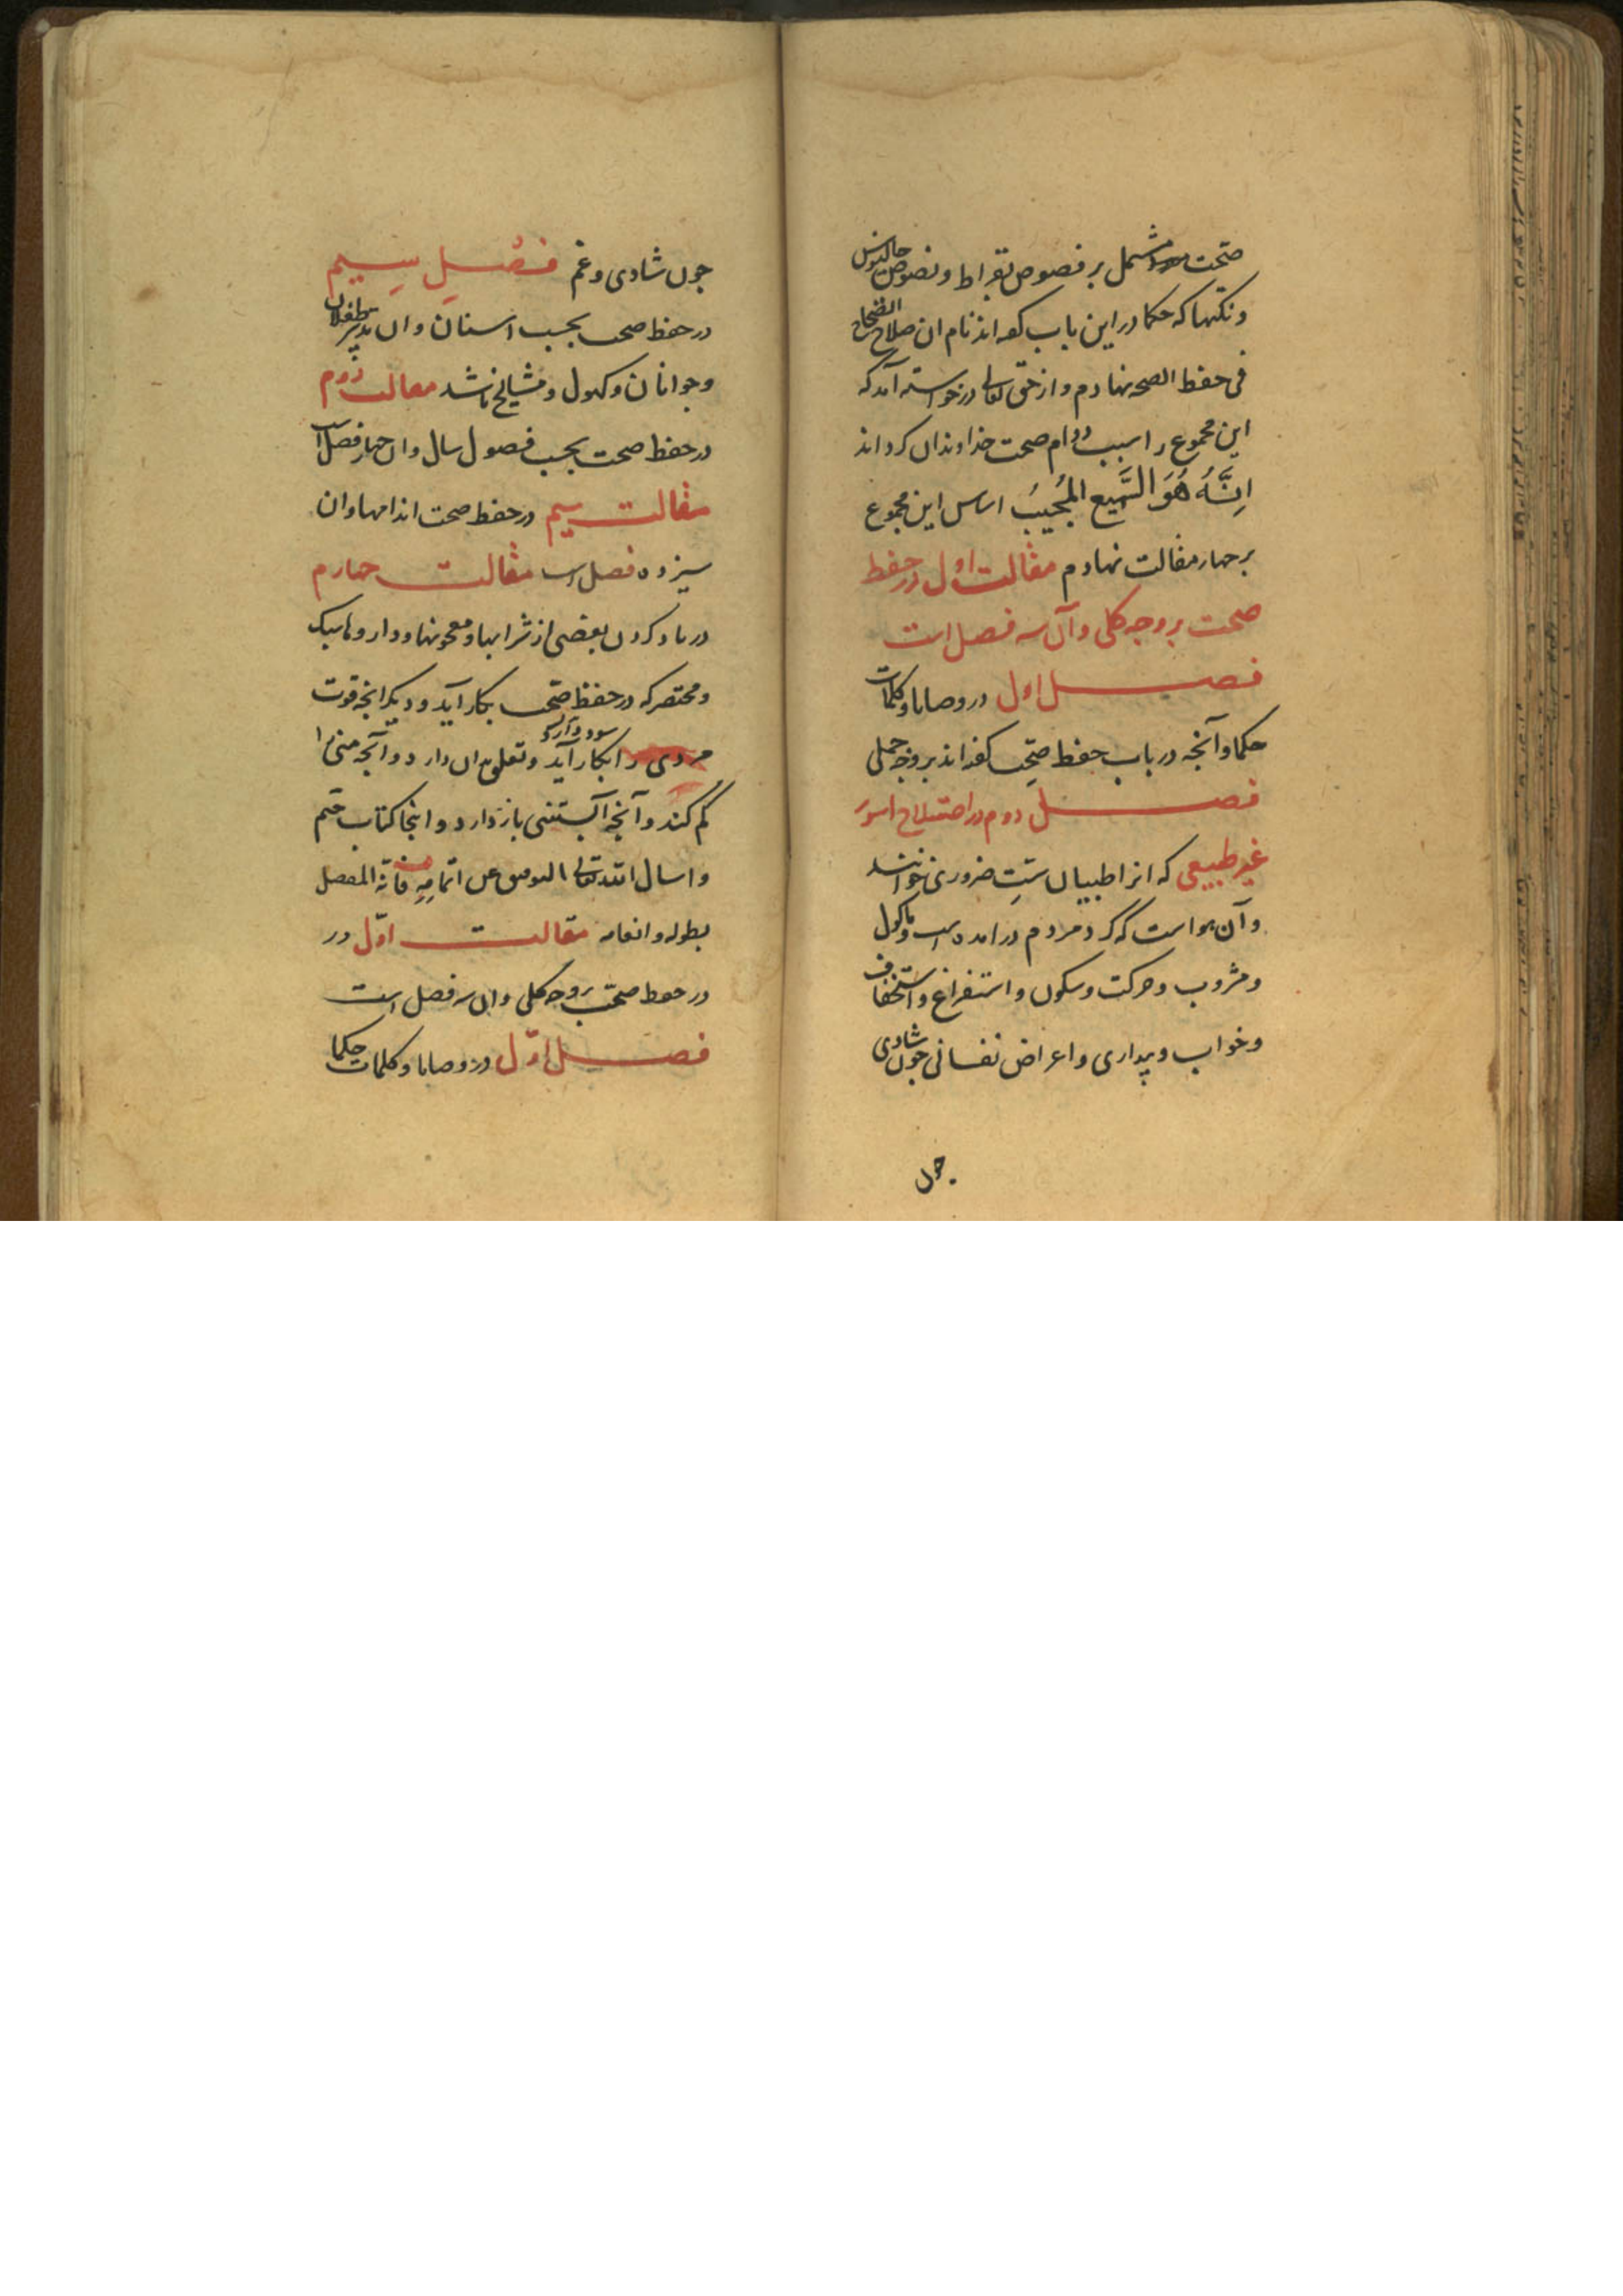 صحّت مشتمل بر فصوص بقراط و نصوص جالینوس
و نکتها که حکما در این باب کفه اند نام ان صلاح الصّحاح
فی حفظ الصحه نهادم و از حق تعالی درخواسته آمد که
این مجموع را سبب دوام صحت خداوندان کرداند
اِنَّهُ هُوَ السَّمیع المُجیبُ اساس این مجموع
بر چهار مقالت نهادم مقالت اول در حفظ
صحت بر وجه کلی و آن سه فصل است
فصل اول در وصایا و کلمات
حکما و آنچه در باب حفظ صحّت کفته اند بر وجه جملی
فصل دوم در
غیر طبیعی که انرا طبیبان ستهٔ ضروری خوانند
و آن هواست که کرد مردم درامده است و ماکول
و مشروب و حرکت و سکون و استفراغ و
و خواب و بیداری و اعراض نفسانی چون شادی
چون
چون شادی و غم فصل سیم
در حفظ صحت بحسب اسنان و ان تدبیر طفلان
و جوانان و کهول و مشایخ باشد مقالت دوم
در حفظ صحت بحسب فصول سال و ان چهار فصل است
مقالت سیم در حفظ صحت اندامها و ان
سیزده فصل است مقالت چهارم
در یاد کردن بعضی از شرابها و معجونها و داروها سبک
و مختصر که در حفظ صحّت بکار آید و دیکر انچه قوت
مردی را بکار آید سود دارد و تعلق بدان دارد و آنچه منی را
کم کند و آنچه آبستنی باز دارد و اینجا کتاب ختم
و اسال الله تعالی التوفیق علی اتمامه فانه المفضل
بطوله و انعامه مقالت اوّل در
در حفظ صحّت بر وجه کلی و ان سه فصل است
فصل اوّل در وصایا و کلمات حکما